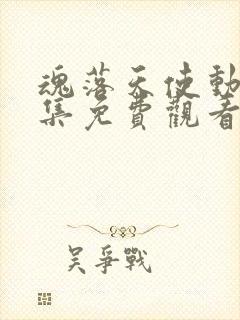 魂落天使動
集免費觀看
吴爭戰